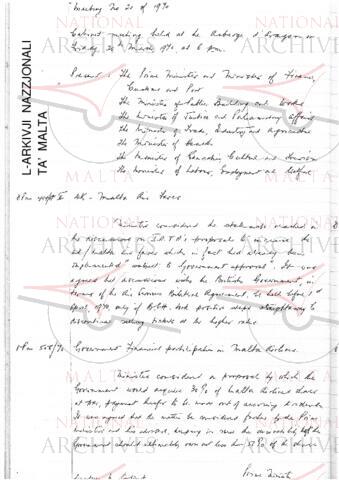 "Meeting No 20 of 1970
Cabinet meeting held at the Auberge d'Aragon on
Friday 20th March 1970 at 6 p.m.
Present: The Prime Minister and Minister of Finance,
Customs and Port
The Minister of Public Building and Works
The Minister of Justice and Parliamentary Affairs
The Minister of Trade, Industry and Agriculture
The Minister of Health
The Minister of Education, Culture and Tourism
The Minister of Labour, Employment and Welfare
L-ARKIVJI NAZZJONALI
TA' MALTA
UK - Malta Air Fares
Ministers considered the stalemate reached in
the discussions on I.A.T.A's proposal to increase the
UK/Malta air fares which in fact had already been
implemented "subject to Government approval". It was
agreed that discussions with the British Government, in
terms of the Air Services Bilateral Agreement, be held before 1
April, 1970 only if B.E.A. took positive steps straightaway to
discontinue selling tickets at the higher rates.
Government Financial participation in Malta Airlines.
Ministers considered a proposal by which the
Government would acquire 30% of Malta Airlines shares
at par, payment therefor to be made out of accruing dividends.
It was agreed that the matter be considered further by the Prime
Minister and his advisers, keeping in mind the desirability that
Government should ultimately own not less than 51% of the shares
Prime Minister
NATIONAL
ARCHIVES